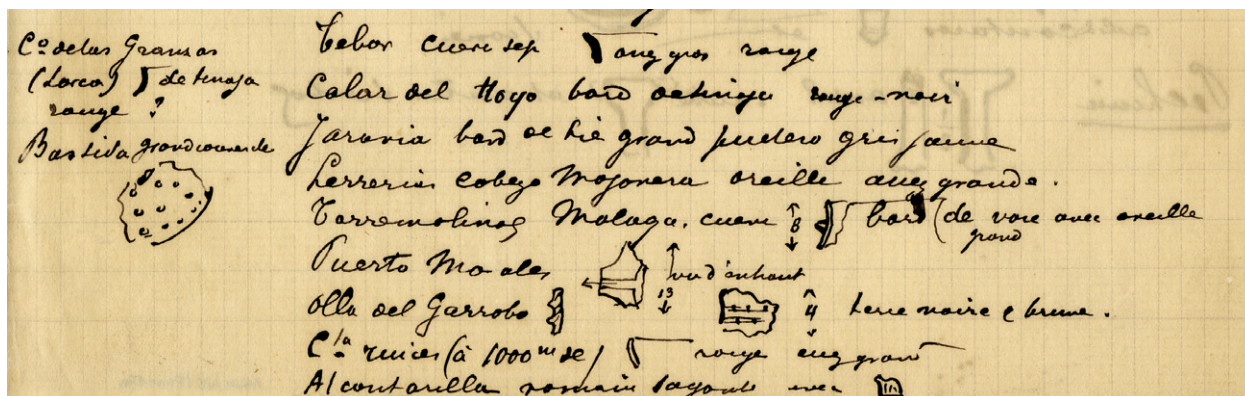 Co de las Granzas
(Lorca) de tinaja
rouge ?
Bastida grand couvercle
Tebar cueva sep assez gros rouge
Calar del Hoyo bord de tinaja rouge-noir
Jaravia bord de grand puchero gris jaune
Herrerias Cabezo Mojonera oreille assez grande.
Torremolinos Malaga. cueva 8 bord de vase avec oreille
grand
Puerto Morales vu d'en haut
13
Olla del Garrobo 4 terre noire & brune.
Cta ruices (à 1000m de) rouge assez grand
Alcantarilla romain avec